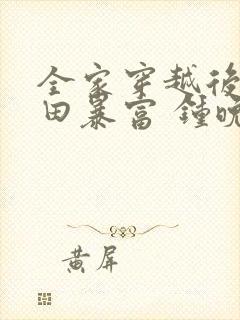 全家穿越後
田暴富 鍾晚
黄屏